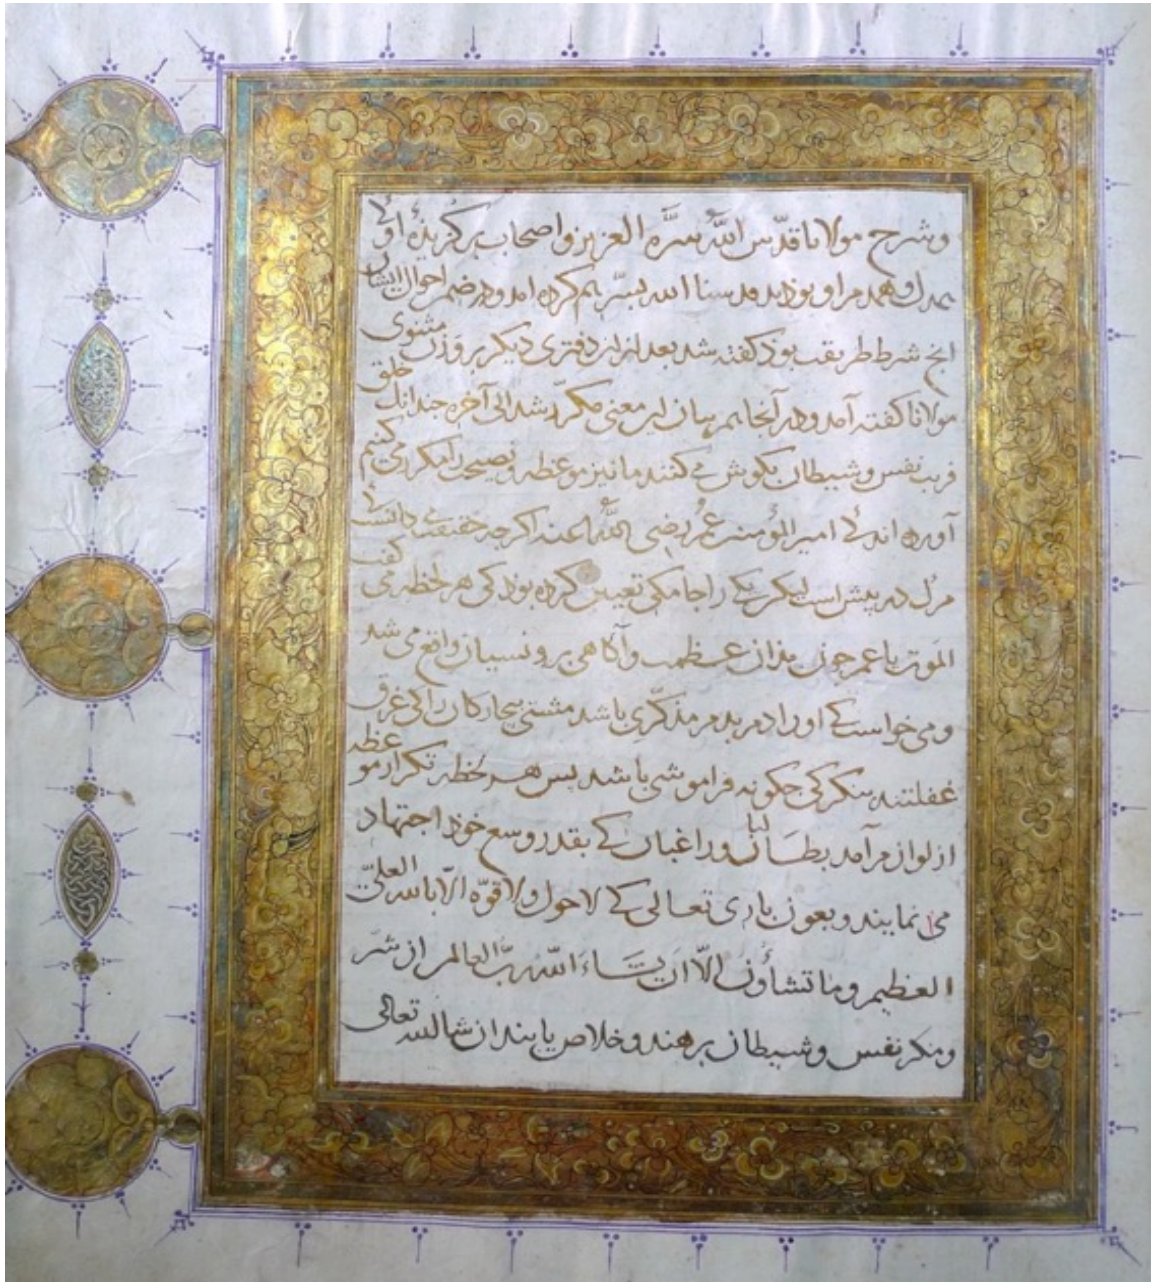 و شرح مولانا قدّس اللّه سرّه العزیز و اصحاب برگزیدهٔ او کی
همدل و همدم او بودند قدسنا الله بسرّهم کرده امد و در ضمن احوال ایشان
انج شرط طریقت بود کفته شد بعد ازان از دفتری دیکر بر وزن مثنوی
مولانا کفته آمد و در آنجا هم بیان این معنی مکرّر شد الی آخره جندانک خلق
فریب نفس و شیطان بکوش می کنند ما نیز موعظه و نصیحت را مکرر می کنیم
آورده اند کی امیر المؤمنین عُمَر رضی اللّه عنه اکرجه حقیقت دانست کی
مرک در پیش است لیکن یکی را جامکی تعیین کرده بود کی هر لحظه می کفت
الموت یا عمر چون بذان عظمت و آکاهی برو نسیان واقع می شد
و می خواست کی او را دم بدم مذکّری باشد مشتی بیجارکان را کی غرق
غفلتند بنکر کی جکونه فراموشی باشد بس هر لحظه تکرار موعظه
از لوازم آمد بطالبان و راغبان کی بقدر وسع خوذ اجتهاد
می نمایند و بعون باری تعالی کی لا حول و لا قوّه الّا بالله العلیّ
العظیم و ما تشاؤن الّا ان یشاءَ اللّه ربّ العالمین از شرّ
و مکر نفس و شیطان برهند و خلاص یابند ان شا الله تعالی